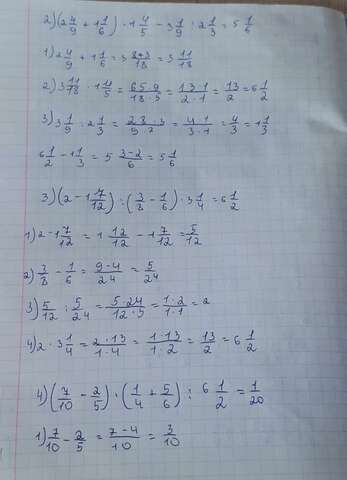 2)(2 4/9 + 1 1/6) · 1 4/5 - 3 1/9 : 2 1/3 = 5 1/6
1) 2 4/9 + 1 1/6 = 3 8+3/18 = 3 11/18
2) 3 11/18 · 1 4/5 = 65·9/18·5 = 13·1/2·1 = 13/2 = 6 1/2
3) 3 1/9 : 2 1/3 = 28·3/9·7 = 4·1/3·1 = 4/3 = 1 1/3
6 1/2 - 1 1/3 = 5 3-2/6 = 5 1/6
3)(2 - 1 7/12) : (3/8 - 1/6) · 3 1/4 = 6 1/2
1) 2 - 1 7/12 = 1 12/12 - 1 7/12 = 5/12
2) 3/8 - 1/6 = 9-4/24 = 5/24
3) 5/12 : 5/24 = 5·24/12·5 = 1·2/1·1 = 2
4) 2 · 3 1/4 = 2·13/1·4 = 1·13/1·2 = 13/2 = 6 1/2
4)(7/10 - 2/5) · (1/4 + 5/6) : 6 1/2 = 1/20
1) 7/10 - 2/5 = 7-4/10 = 3/10